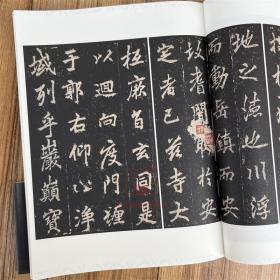 地之德也川浮
而動岳鎮而安
故耆闍取於安
定者已茲寺大
抵厥旨玄同是
以迴向度門
于郭右仰心淨
域列乎巖巔寶